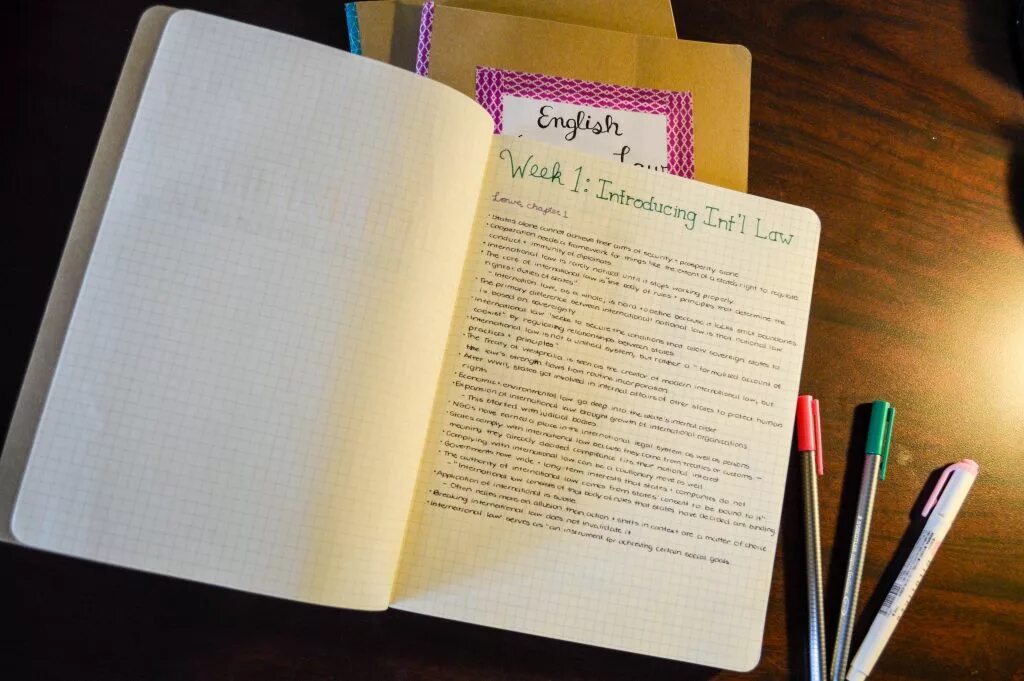 English
Law
Week 1: Introducing Int'l Law
Lowe, chapter 1
• States alone cannot achieve their aims of security + prosperity alone
• Cooperation needs a framework for things like the extent of a state's right to regulate
conduct + immunity of diplomats
• International law is rarely noticed until it stops working properly
• The core of international law is "the body of rules + principles that determine the
rights + duties of states"
- Internation law, as a whole, is hard to define because it lacks strict boundaries
• The primary difference between international + national law is that national law
is based on sovereignty
• International law "seeks to secure the conditions that allow sovereign states to
coexist" by regulating relationships between states
• International law is not a unified system, but rather a "formalised account of
practices + principles"
• The Treaty of Westphalia is seen as the creator of modern international law, but
the law's strength flows from routine incorporation
• After WWII, states got involved in internal affairs of other states to protect human
rights
• Economic + environmental law go deep into the state's internal order
• Expansion of international law brought growth of international organizations
- This started with judicial bodies
• NGOs have earned a place in the international legal system as well as persons
• States comply with international law because they come from treaties or customs -
meaning they already decided compliance fits their national interest
• Complying with international law can be a cautionary move as well
• Governments have wide + long-term interests that states + companies do not
• The authority of international law comes from states' consent to be bound to it
- "International law consists of that body of rules that states have decided are binding"
• Application of international is subtle
- Often relies more on allusion than action + shifts in context are a matter of choice
• Breaking international law does not invalidate it
• International law serves as "an instrument for achieving certain social goals